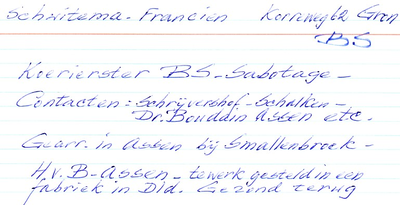 Schuitema - Francien Korreweg 62 Gron
BS
Koerierster BS - Sabotage -
Contacten: Schrijvershof - Schalken -
Dr. Bouddin Assen etc.
Gearr. in Assen bij Smallenbroek -
H.v.B - Assen - tewerk gesteld in een
fabriek in Dld. Gezond terug